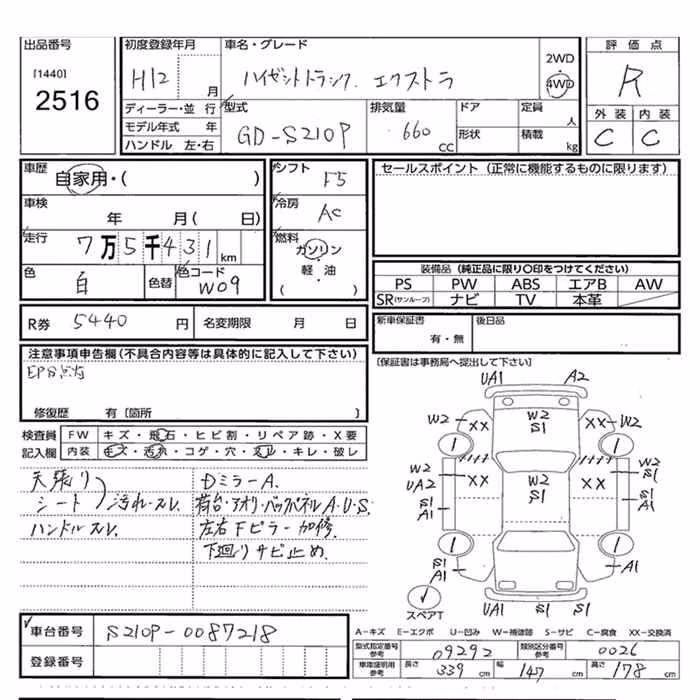 出品番号
[1440]
2516
初度登録年月
H12 月
ディーラー・並 行
モデル年式 年
ハンドル 左・右
車名・グレード
ハイゼットトラック. エクストラ
2WD
4WD
型式
GD-S210P
排気量
660
CC
ドア
形状
定員
人
積載
kg
評 価 点
R
外 装 内 装
C C
車歴
自家用・( )
車検
年 月( 日)
走行
7万5千431km
色
白
色替
色コード
W09
シフト
F5
冷房
AC
燃料
ガソリン
・
軽・油
( )
セールスポイント (正常に機能するものに限ります)
装備品 (純正品に限り○印をつけてください)
PS PW ABS エアB AW
SR(サンルーフ) ナビ TV 本革
R券 5440 円 名変期限 月 日
新車保証書
有・無
後日品
(保証書は事務局へ提出して下さい)
注意事項申告欄(不具合内容等は具体的に記入して下さい)
修復歴 有〔箇所 〕
検査員 FW キズ・飛石・ヒビ割・リペア跡・X要
記入欄 内装 キズ・汚れ・コゲ・穴・スレ・キレ・破レ
天張り
シート
汚れ・スレ
ハンドルスレ.
DミラーA.
荷台・アオリ・バックパネルA・U・S.
左右Fピラー加修.
下廻りサビ止め.
UA1 A2
W2 XX W2 S1 XX W2
1 1
W2 UA2 XX W2 S1 XX W2 S1
S1 A1 S1 A1
1 1
S1 A1 S1 A1
1
スペアT
UA1 S1 S1
A-キズ E-エクボ U-凹み W-補修跡 S-サビ C-腐食 XX-交換済
車台番号 S210P-0087218
登録番号
型式指定番号 参考 09292 類別区分番号 参考 0026
車庫証明用 参考 長さ 339 cm 幅 147 cm 高さ 178 cm